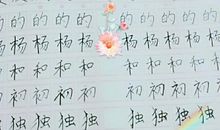 的 的 的 的 的 的 的
杨 杨 杨 杨 杨 杨 杨 杨
和 和 和 和 和 和 和 和
初 初 初 初 初 初 初 初
独 独 独 独 独 独 独 独